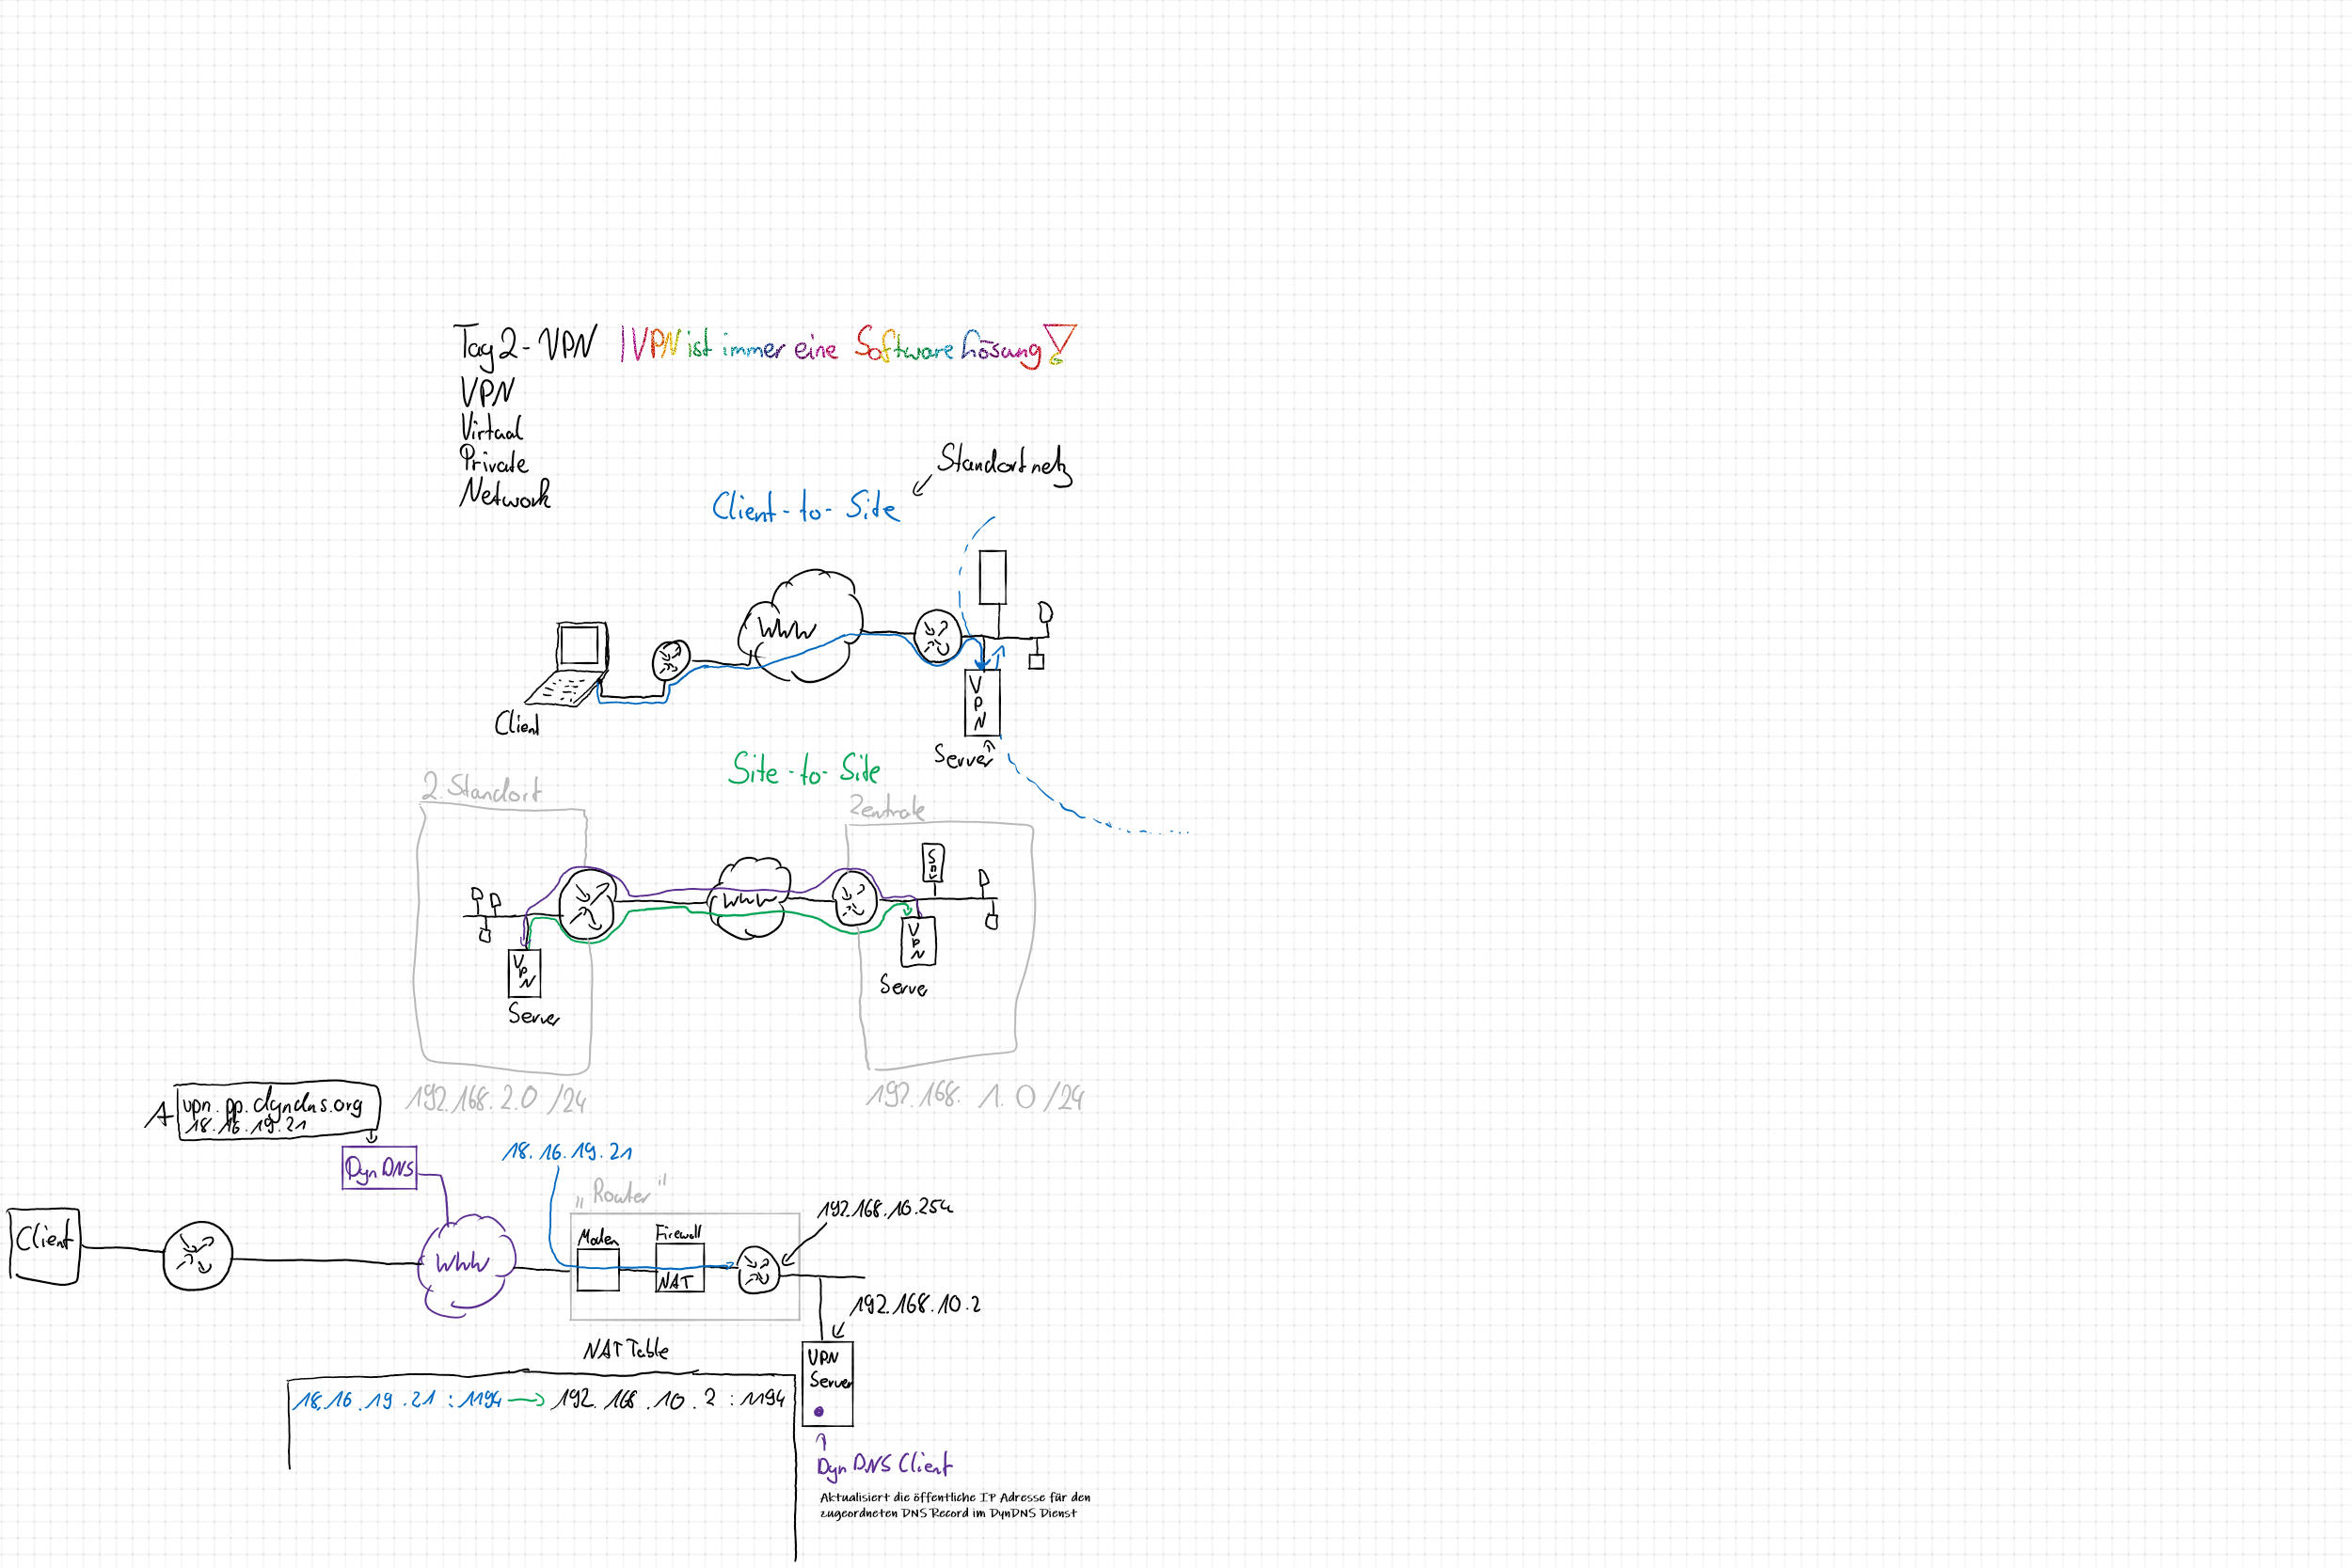 Tag 2 - VPN | VPN ist immer eine Software Lösung!
VPN
Virtual
Private
Network
Standortnetz
Client-to-Site
WWW
VPN
Client
Server
Site-to-Site
2. Standort
Zentrale
SRV
WWW
VPN
Server
VPN
Server
192.168.2.0 /24
192.168.1.0 /24
A
vpn.pp.dyndns.org
18.16.19.21
DynDNS
18.16.19.21
„Router"
192.168.10.254
Client
WWW
Modem
Firewall
NAT
192.168.10.2
NAT Table
18.16.19.21 :1194 → 192.168.10.2 :1194
VPN
Server
DynDNS Client
Aktualisiert die öffentliche IP Adresse für den
zugeordneten DNS Record im DynDNS Dienst